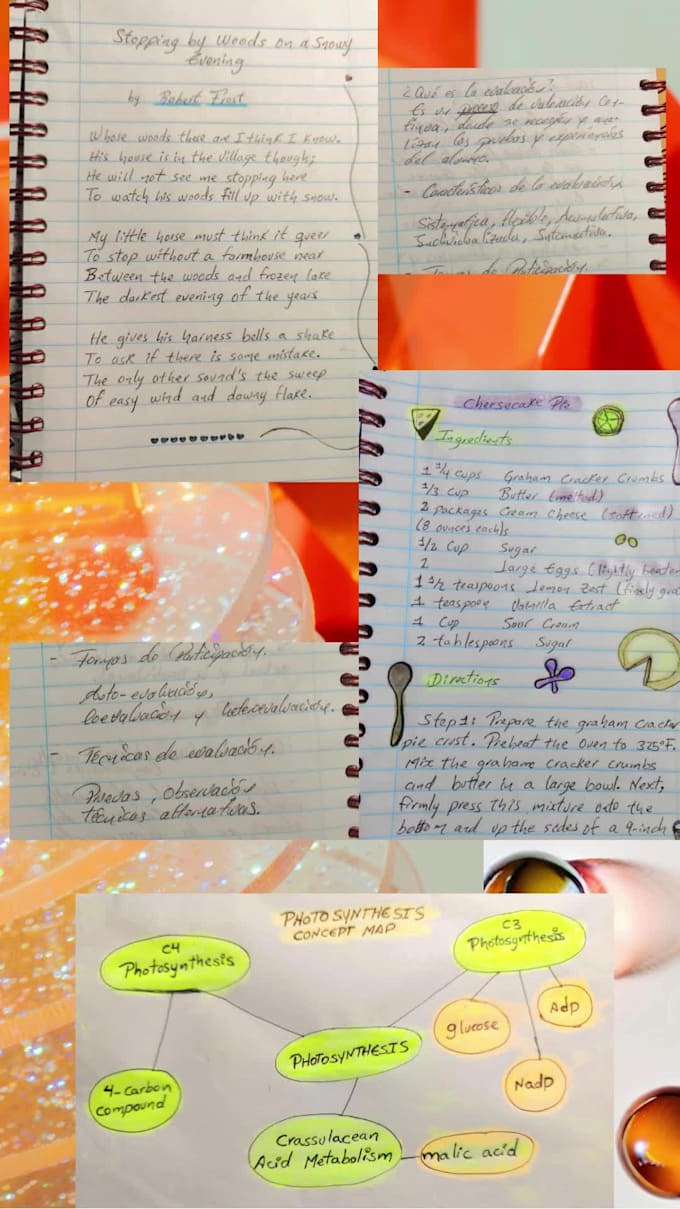 Stopping by Woods On a Snowy
Evening
by Robert Frost
Whose woods these are I think I know.
His house is in the village though;
He will not see me stopping here
To watch his woods fill up with snow.
My little horse must think it queer
To stop without a farmhouse near
Between the woods and frozen lake
The darkest evening of the years
He gives his harness bells a shake
To ask if there is some mistake.
The only other sound's the sweep
Of easy wind and downy flake.
¿Qué es la evaluación?
Es un proceso de valoración con-
tinua, donde se recogen y ana-
lizan las pruebas y experiencias
del alumno.
- Características de la evaluación
Sistematica, flexible, Acumulativa,
- Formas de Participación.
Cheesecake Pie
Ingredients
1 3/4 cups Graham Cracker Crumbs
1/3 cup Butter (melted)
2 packages Cream Cheese (softened)
(8 ounces each)
1/2 Cup Sugar
2 Large Eggs (lightly beaten
1 1/2 teaspoons Lemon Zest (finely gra
1 teaspoon Vanilla Extract
1 Cup Sour Cream
2 tablespoons Sugar
Directions
Step 1: Prepare the graham cracker
pie crust. Preheat the oven to 325°F.
Mix the grahame cracker crumbs
and butter in a large bowl. Next,
firmly press this mixture onto the
bottom and up the sides of a 9-inch
- Formas de Participación.
Auto-evaluación,
Coevaluación y heteroevaluación.
- Técnicas de evaluación.
Pruebas, Observación
Técnicas alternativas.
PHOTOSYNTHESIS
CONCEPT MAP
C4
Photosynthesis
C3
Photosynthesis
glucose
Adp
Nadp
PHOTOSYNTHESIS
4-Carbon
Compound
Crassulacean
Acid Metabolism
malic acid